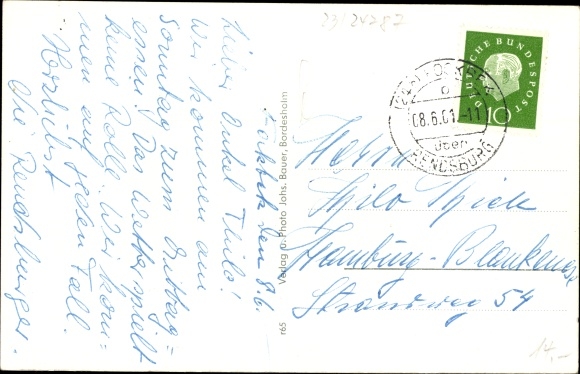 23/24287
Fockbek den 8.6.
Lieber Onkel Thilo!
Wir kommen am
Sonntag zum Mittag=
essen! Das Wetter spielt
keine Rolle. Wir kom=
men auf jeden Fall.
Herzlichst
Die Rendsburger.
Verlag u. Photo Johs. Bauer, Bordesholm
r65
08.6.61.-11
über
RENDSBURG
DEUTSCHE BUNDESPOST
10
Herrn
Thilo Thiele
Hamburg-Blankenese
Strandweg 54
14,-